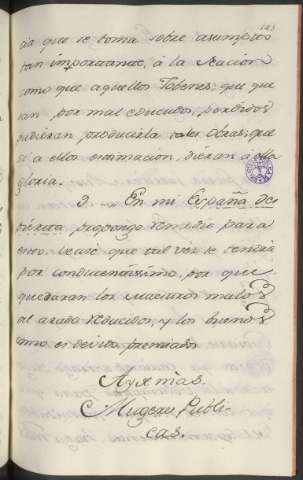 123
cia que se toma sobre asumptos
tan importantes, à la Nacion
como que aquellos Jobenes, que que
dan por mal educados, perdidos
pudieran producirla tales Obras, que
si à ellos estimacion, dieran à ella
gloria.
9. En mi España des
pierta, propongo remedio para
esto. Lease que tal vez se tendrá
por conducentissimo, por que
quedaran los Maestros malos
al arado reducidos, y los buenos
como es devido premiados.
Ayes mas.
Mugeres Publi-
cas.